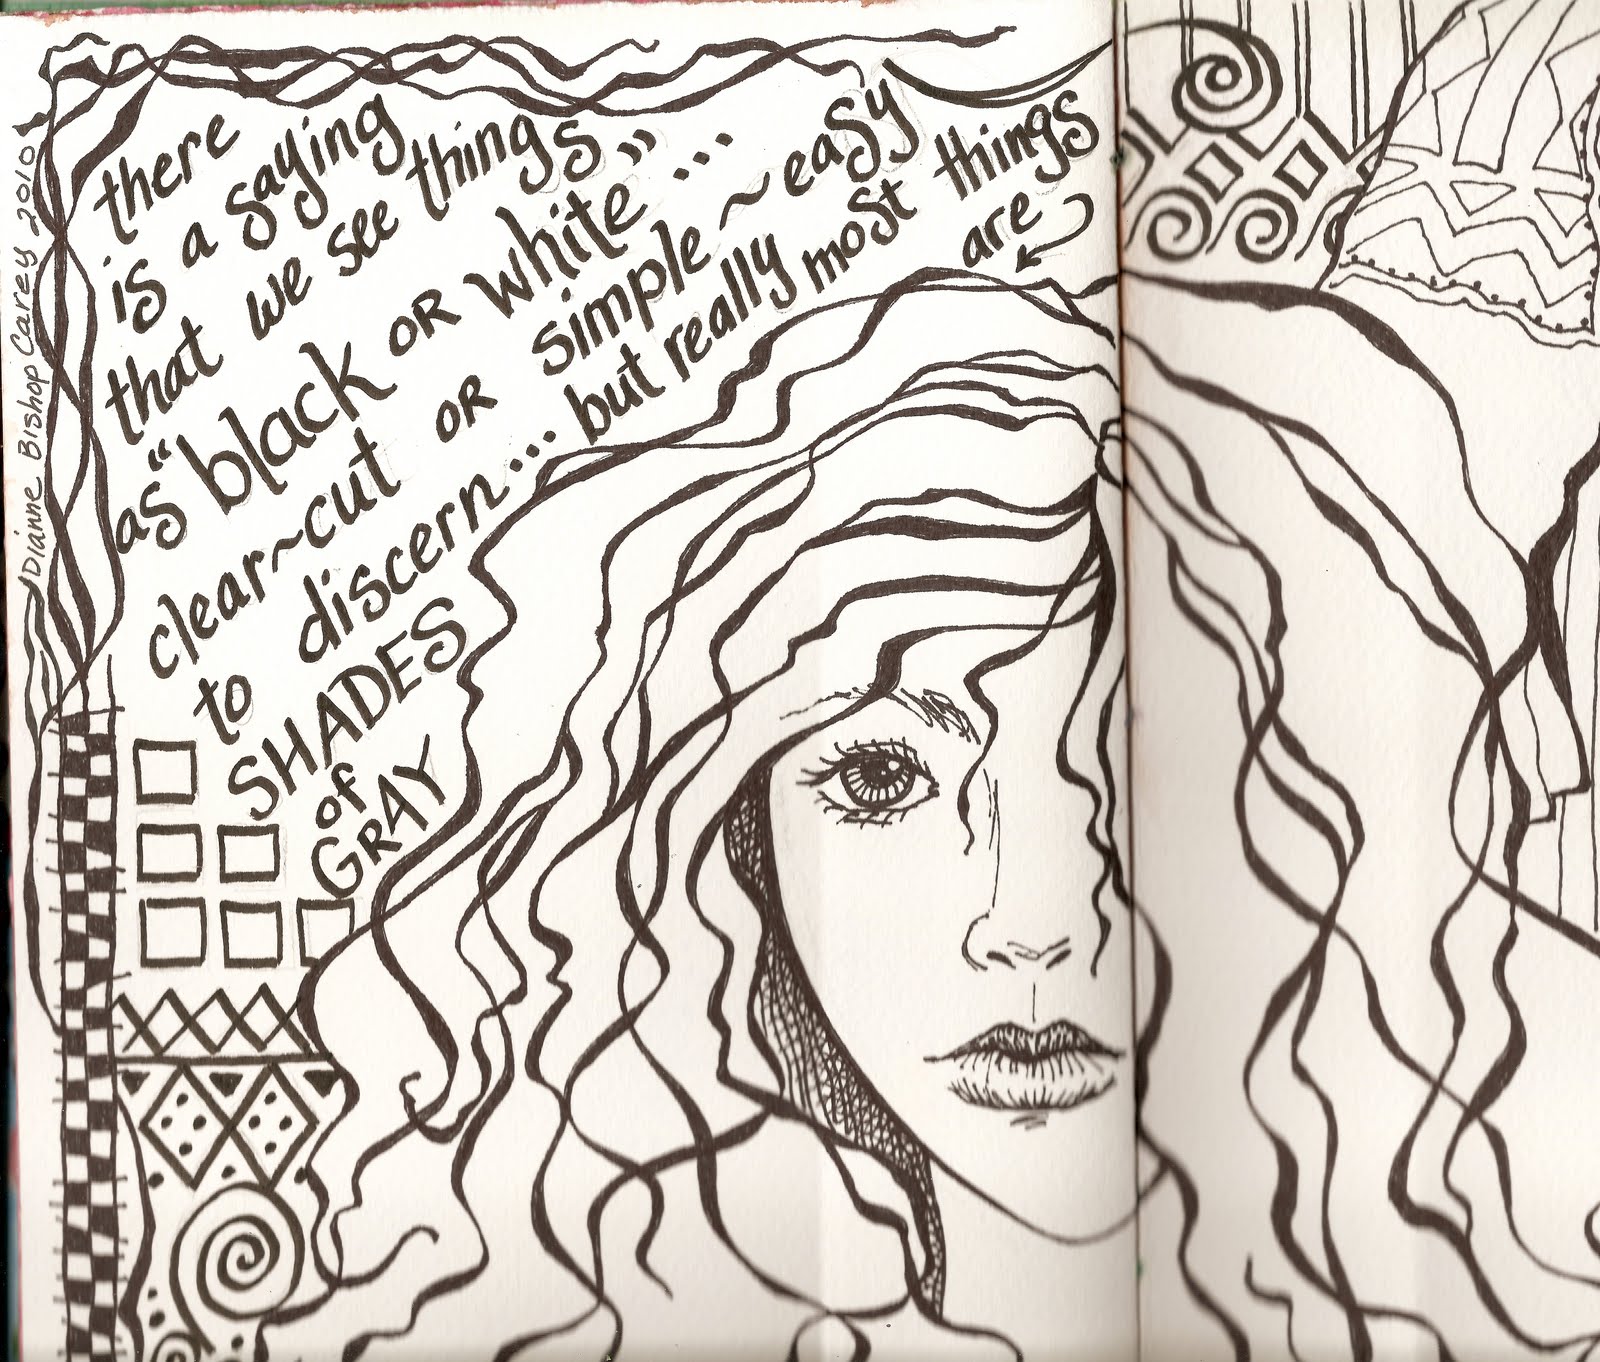 there
is a saying
that we see things
as "black OR white" ...
clear~cut OR simple~easy
to discern... but really most things
are
SHADES
of
GRAY
Dianne Bishop Carey 2010